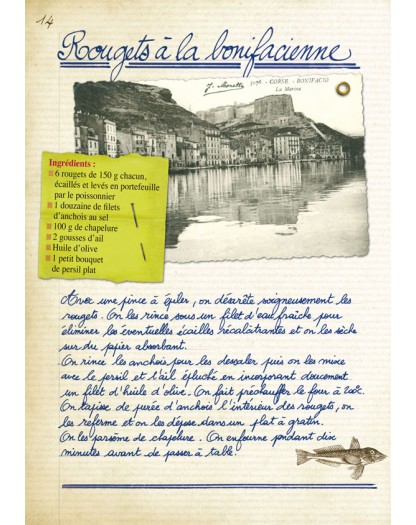 14
Rougets à la bonifacienne
J. Moretti
1076 - CORSE. - BONIFACIO
La Marine
Ingrédients :
6 rougets de 150 g chacun,
écaillés et levés en portefeuille
par le poissonnier
1 douzaine de filets
d'anchois au sel
100 g de chapelure
2 gousses d'ail
Huile d'olive
1 petit bouquet
de persil plat
Avec une pince à épiler, on désarête soigneusement les
rougets. On les rince sous un filet d'eau fraîche pour
éliminer les éventuelles écailles récalcitrantes et on les sèche
sur du papier absorbant.
On rince les anchois pour les dessaler puis on les mixe
avec le persil et l'ail épluché en incorporant doucement
un filet d'huile d'olive. On fait préchauffer le four à 200c.
On tapisse de purée d'anchois l'intérieur des rougets, on
les referme et on les dépose dans un plat à gratin.
On les parsème de chapelure. On enfourne pendant dix
minutes avant de passer à table.